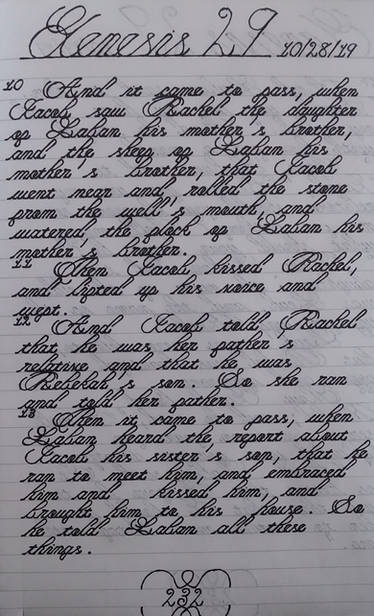 Genesis 29 10/28/19
10 And it came to pass, when
Jacob saw Rachel the daughter
of Laban his mother's brother,
and the sheep of Laban his
mother's brother, that Jacob
went near and rolled the stone
from the well's mouth, and
watered the flock of Laban his
mother's brother.
11 Then Jacob kissed Rachel,
and lifted up his voice and
wept.
12 And Jacob told Rachel
that he was her father's
relative and that he was
Rebekah's son. So she ran
and told her father.
13 Then it came to pass, when
Laban heard the report about
Jacob his sister's son, that he
ran to meet him, and embraced
him and kissed him, and
brought him to his house. So
he told Laban all these
things.
232